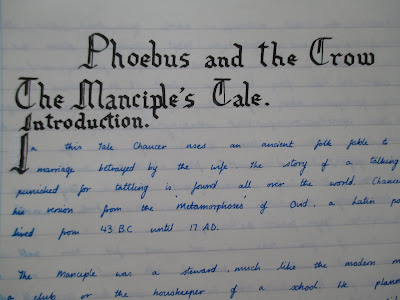 Phoebus and the Crow
The Manciple's Tale.
Introduction.
In this Tale Chaucer uses an ancient folk fable to
marriage betrayed by the wife. The story of a talking
punished for tattling is found all over the world. Chaucer
his version from the 'Metamorphoses' of Ovid, a Latin po
lived from 43 B.C until 17 A.D.
The Manciple was a steward, much like the modern m
a club or the housekeeper of a school. He plann